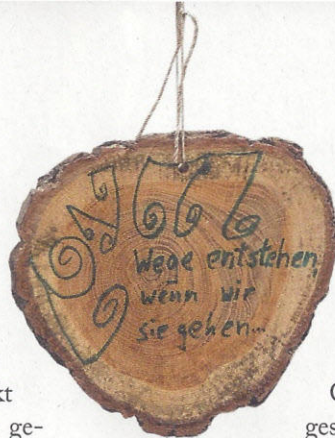 Wege entstehen,
wenn wir
sie gehen...
kt
ge-
ges